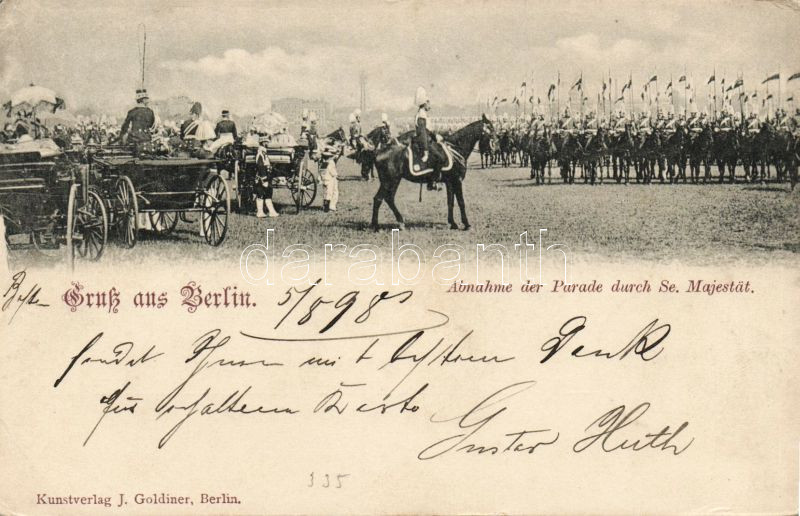 Gruß aus Berlin.
Abnahme der Parade durch Se. Majestät.
5/8 98
sendet Ihnen mit bestem Dank
für erhaltene Karte
Gustav Huth
335
Kunstverlag J. Goldiner, Berlin.
darabanth